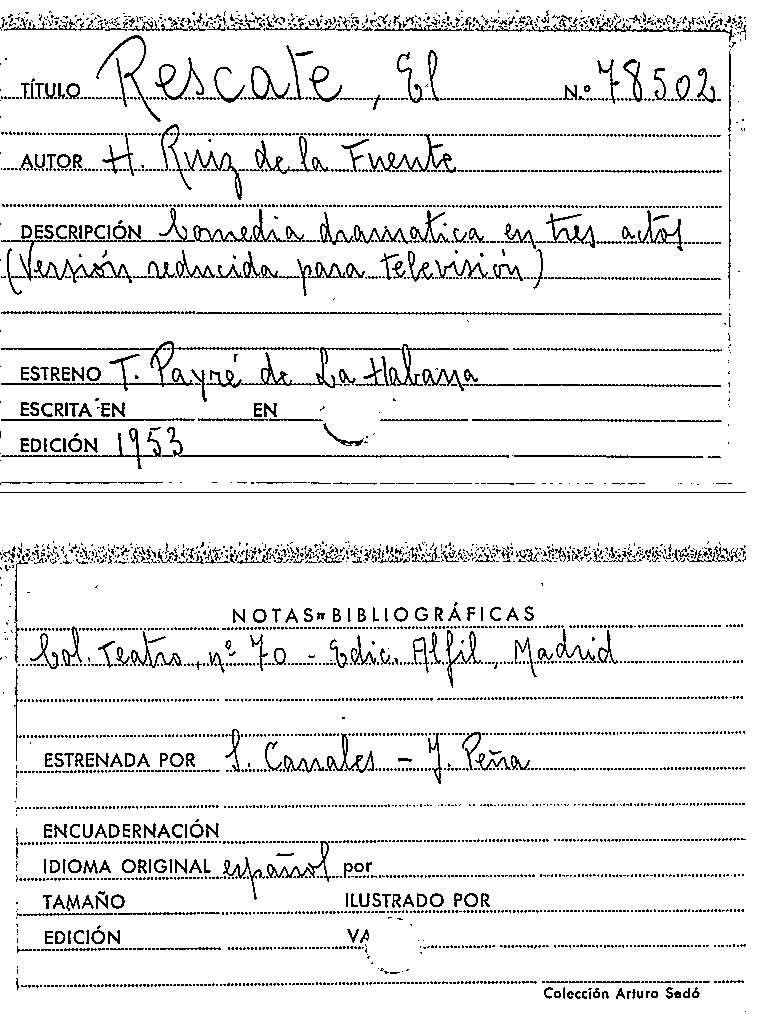 TÍTULO Rescate, El N.º 78502
AUTOR H. Ruiz de la Fuente
DESCRIPCIÓN Comedia dramatica en tres actos
(Versión reducida para televisión)
ESTRENO T. Payré de La Habana
ESCRITA EN EN
EDICIÓN 1953
NOTAS BIBLIOGRÁFICAS
Col. Teatro, nº 70 - Edic. Alfil, Madrid
ESTRENADA POR - J. Peña
ENCUADERNACIÓN
IDIOMA ORIGINAL español por
TAMAÑO ILUSTRADO POR
EDICIÓN VA
Colección Arturo Sedó